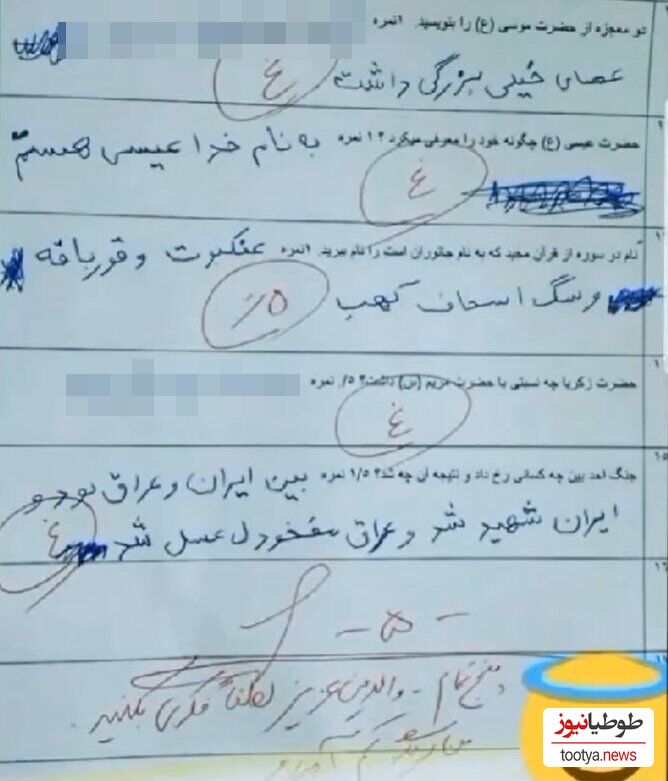 دو معجزه از حضرت موسی (ع) را بنویسید. ۱نمره
عصای خیلی بزرگی داشت
غ
حضرت عیسی (ع) چگونه خود را معرفی میکرد ؟ ۱ نمره به نام خدا عیسی هستم
غ
نام دو سوره از قرآن مجید که به نام جانوران است را نام ببرید. ۱نمره عنکبوت و قورباقه
و سگ اسحاف کهب
۵/
حضرت زکریا چه نسبتی با حضرت مریم (س) داشت؟ ۵/. نمره
غ
جنگ احد بین چه کسانی رخ داد و نتیجه آن چه شد؟ ۱/۵ نمره بین ایران و عراق بود و
ایران شهید شد و عراق مفخودل عسل شد
غ
- ۵ -
پنج تمام - والدین عزیز لطفاً فکری بکنید.
طوطیانیوز
tootya.news